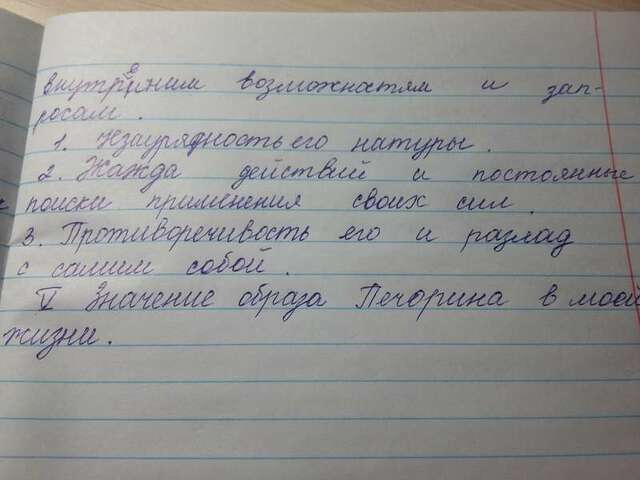 внутренним возможностям и зап-
росам.
1. Незаурядность его натуры.
2. Жажда действий и постоянные
поиски применения своих сил.
3. Противоречивость его и разлад
с самим собой.
V Значение образа Печорина в моей
жизни.